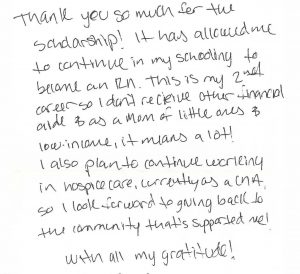 Thank you so much for the
scholarship! It has allowed me
to continue in my schooling to
become an RN. This is my 2nd
career so I don't recieve other financial
aide & as a Mom of little ones &
low-income, it means a lot!
I also plan to continue working
in hospice care, currently as a CNA,
so I look forward to giving back to
the community that's supported me!
With all my gratitude!